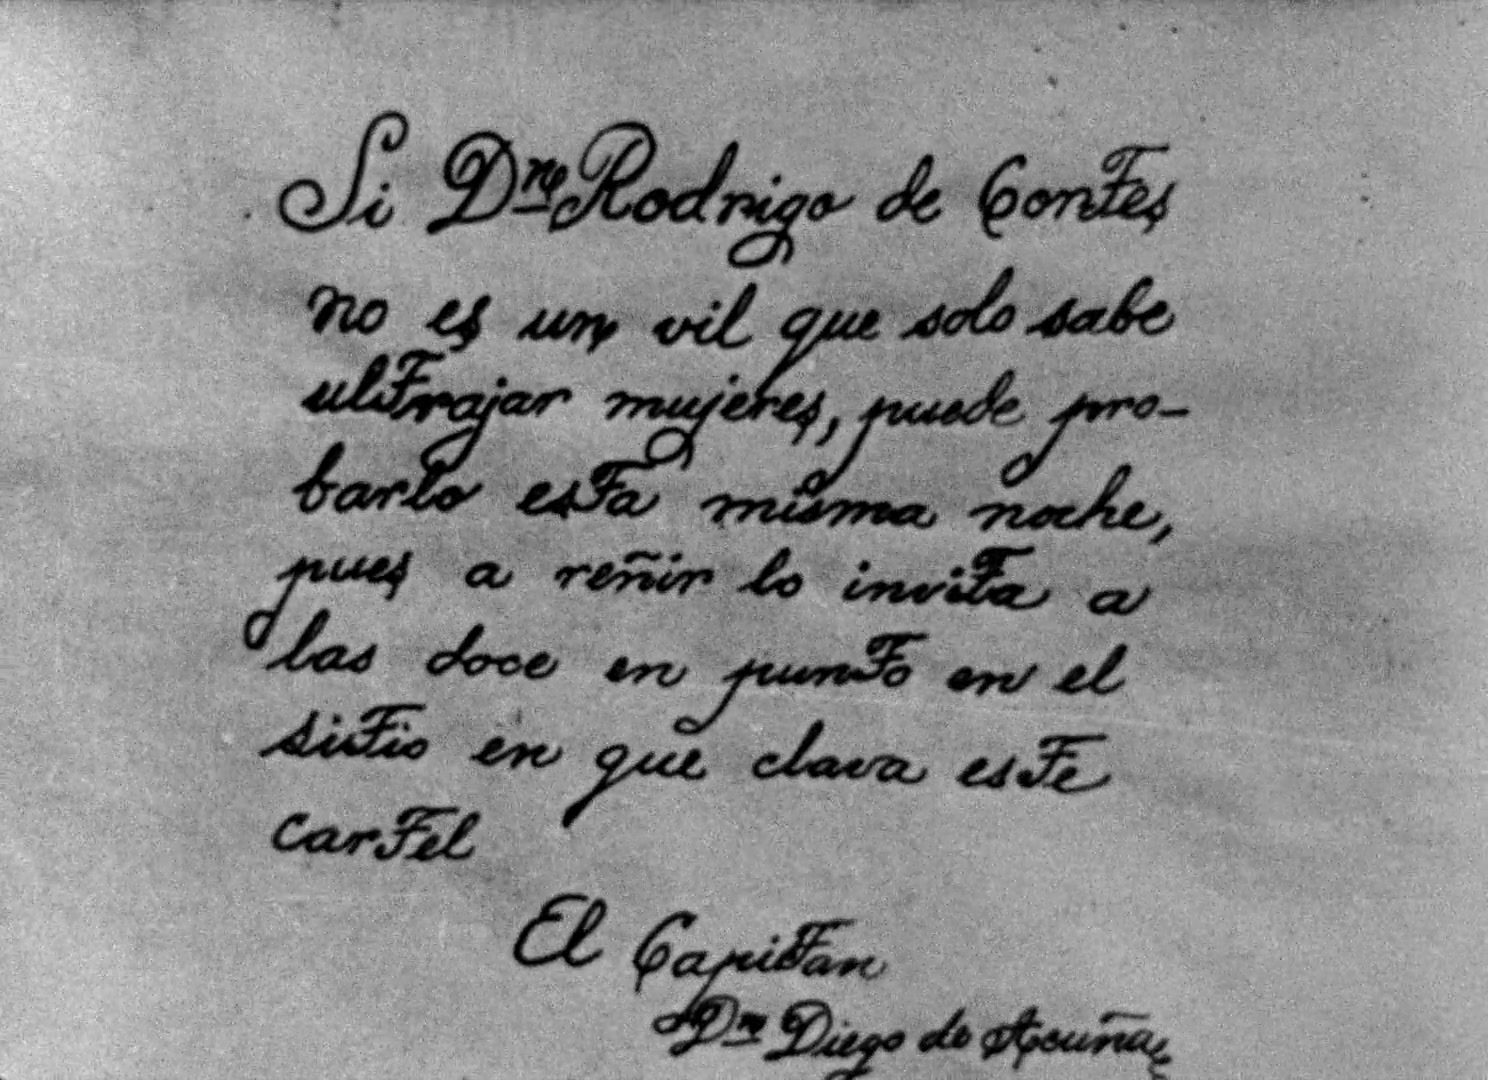 Si Dn Rodrigo de Contes
no es un vil que solo sabe
ultrajar mujeres, puede pro-
barlo esta misma noche,
pues a reñir lo invita a
las doce en punto en el
sitio en que clava este
cartel
El Capitan
Dn Diego de Acuña